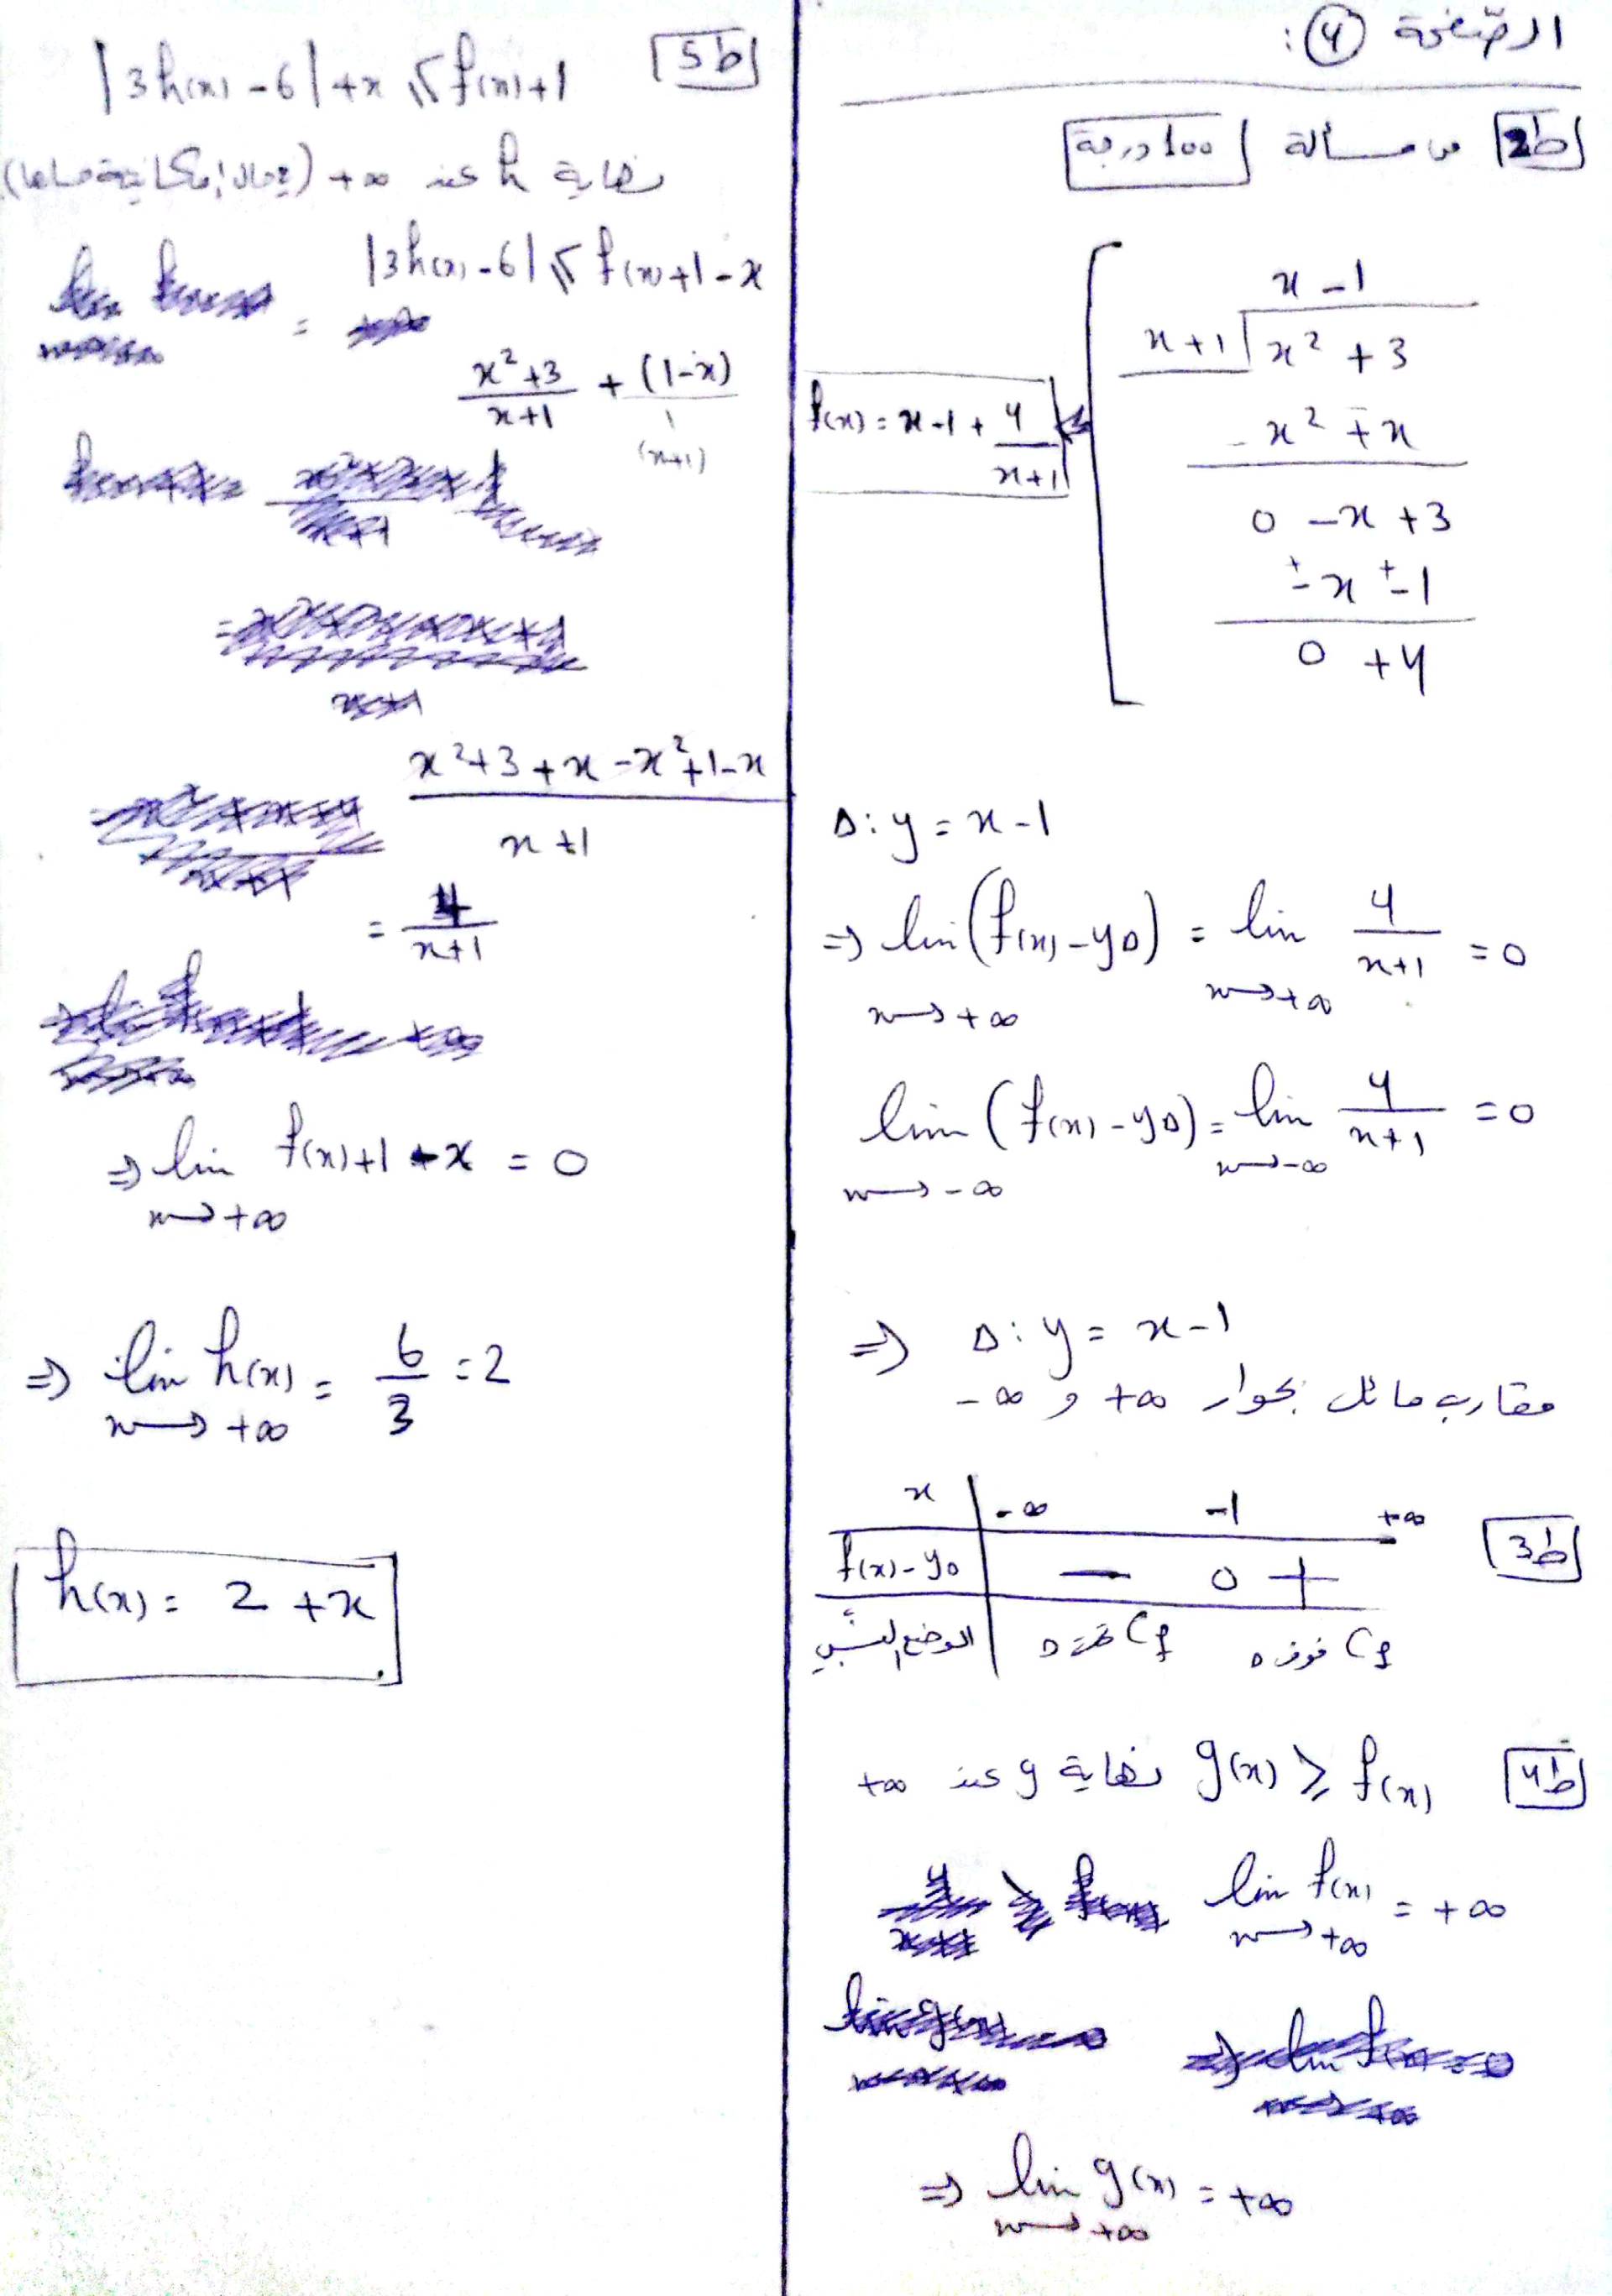 الصفحة ④ :
ط2 من مسألة 100 درجة
x - 1
x + 1 x² + 3
- x² + x
0 - x + 3
+- x +- 1
0 + 4
f(x) = x - 1 + 4/(x+1)
Δ: y = x - 1
⇒ lim (f(x) - yΔ) = lim 4/(x+1) = 0
x → +∞ x → +∞
lim (f(x) - yΔ) = lim 4/(x+1) = 0
x → -∞ x → -∞
⇒ Δ: y = x - 1
مقارب مائل بجوار +∞ و -∞
ط3
x -∞ -1 +∞
f(x) - yΔ - 0 +
الوضع النسبي Cf تحت Δ Cf فوق Δ
ط4 g(x) ≥ f(x) نهاية g عند +∞
lim f(x) = +∞
x → +∞
⇒ lim g(x) = +∞
x → +∞
ط5 |3h(x) - 6| + x ≤ f(x) + 1
نهاية h عند +∞
|3h(x) - 6| ≤ f(x) + 1 - x
(x² + 3)/(x + 1) + (1 - x)/1
(x+1)
(x² + 3 + x - x² + 1 - x)/(x + 1)
= 4/(x+1)
⇒ lim f(x) + 1 - x = 0
x → +∞
⇒ lim h(x) = 6/3 = 2
x → +∞
h(x) = 2 + x